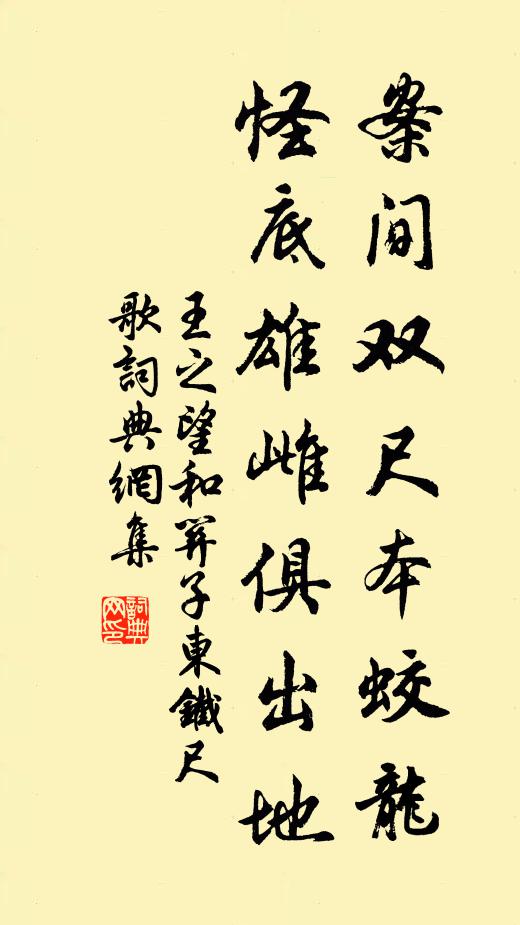 案间双尺本蛟龍
怪底雄雌俱出地
王之望和羿子東鐵尺
歌詞典網集
詞典网印